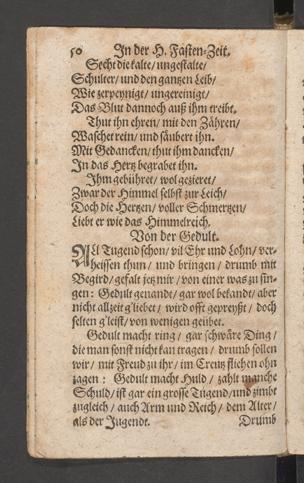 50 In der H. Fasten-Zeit.
Secht die kalte/ ungestalte/
Schulter/ und den gantzen Leib/
Wie zerpeynigt/ ungereinigt/
Das Blut dannoch auß ihm treibt.
Thut ihn ehren/ mit den Zähren/
Waschet rein/ und säubert ihn.
Mit Gedancken/ thut ihm dancken/
In das Hertz begrabet ihn.
Ihm gebühret/ wol gezieret/
Zwar der Himmel selbst zur Leich/
Doch die Hertzen/ voller Schmertzen/
Liebt er wie das Himmelreich.
Von der Gedult.
All Tugend schon/ vil Ehr und Lohn/ ver-
heissen thun/ und bringen/ drumb mit
Begird/ gefalt jetz mir/ von einer was zu sin-
gen: Gedult genandt/ gar wol bekandt/ aber
nicht allzeit g'liebet/ wird offt gepreyßt/ doch
selten g'leist/ von wenigen geübet.
Gedult macht ring/ gar schwäre Ding/
die man sonst nicht kan tragen/ drumb sollen
wir/ mit Freud zu ihr/ im Creutz fliehen ohn
zagen: Gedult macht Huld/ zahlt manche
Schuld/ ist gar ein grosse Tugend/ und zimbt
zugleich/ auch Arm und Reich/ dem Alter/
als der Jugendt. Drumb